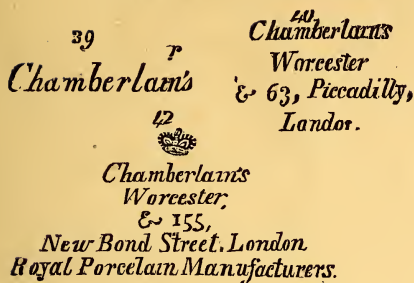 39
r
Chamberlain's
40
Chamberlain's
Worcester
& 63, Piccadilly,
London.
42
Chamberlain's
Worcester,
& 155,
New Bond Street. London
Royal Porcelain Manufacturers.